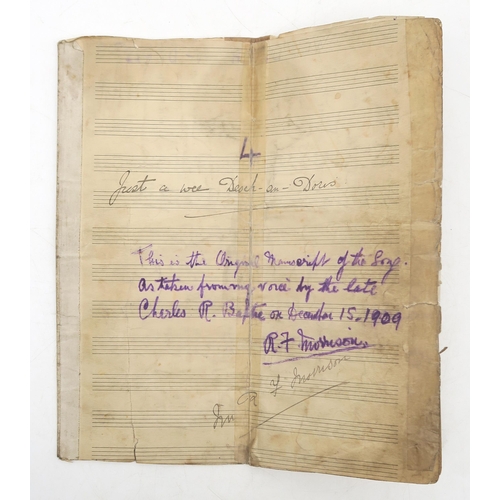 4
Just a wee Deoch-an-Doris
This is the Original Manuscript of the Song.
As taken from my voice by the late
Charles R. on December 15. 1909
R. F Morrison.
R F Morrison